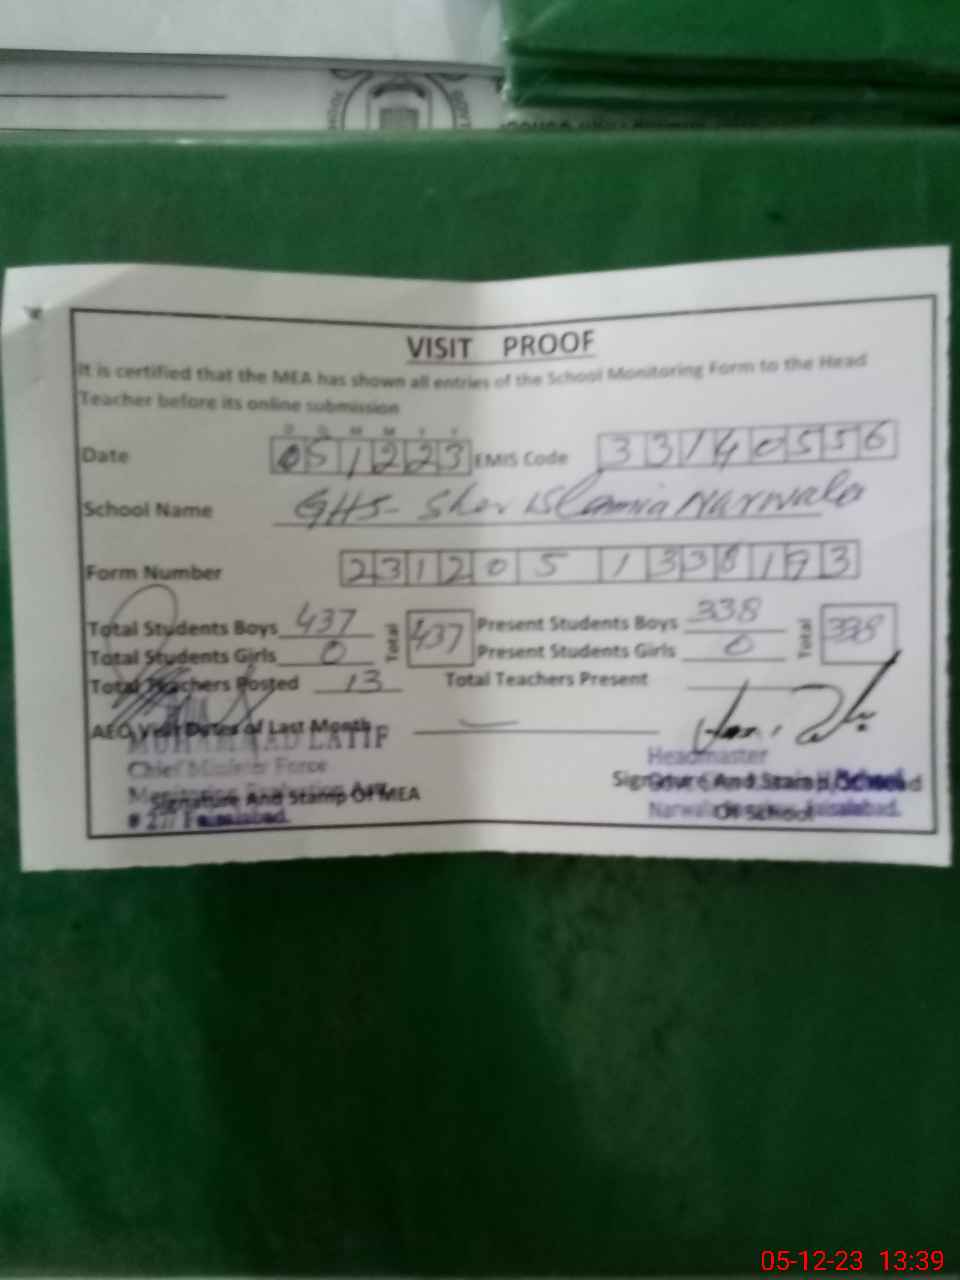 VISIT PROOF
It is certified that the MEA has shown all entries of the School Monitoring Form to the Head
Teacher before its online submission
D D M M Y Y
Date 051223 EMIS Code 33140556
School Name GHS- Sher Islamia Narwala
Form Number 2312051338193
Total Students Boys 437 Total 437 Present Students Boys 338 Total 338
Total Students Girls 0 Present Students Girls 0
Total Teachers Posted 13 Total Teachers Present
AEO Visit Dates of Last Month
MUHAMMAD LATIF
Headmaster
Chief Minister Force
Signature And Stamp Of MEA
Signature And Stamp Of Head
Of School
Narwala Faisalabad.
# 277 Faisalabad.
05-12-23 13:39